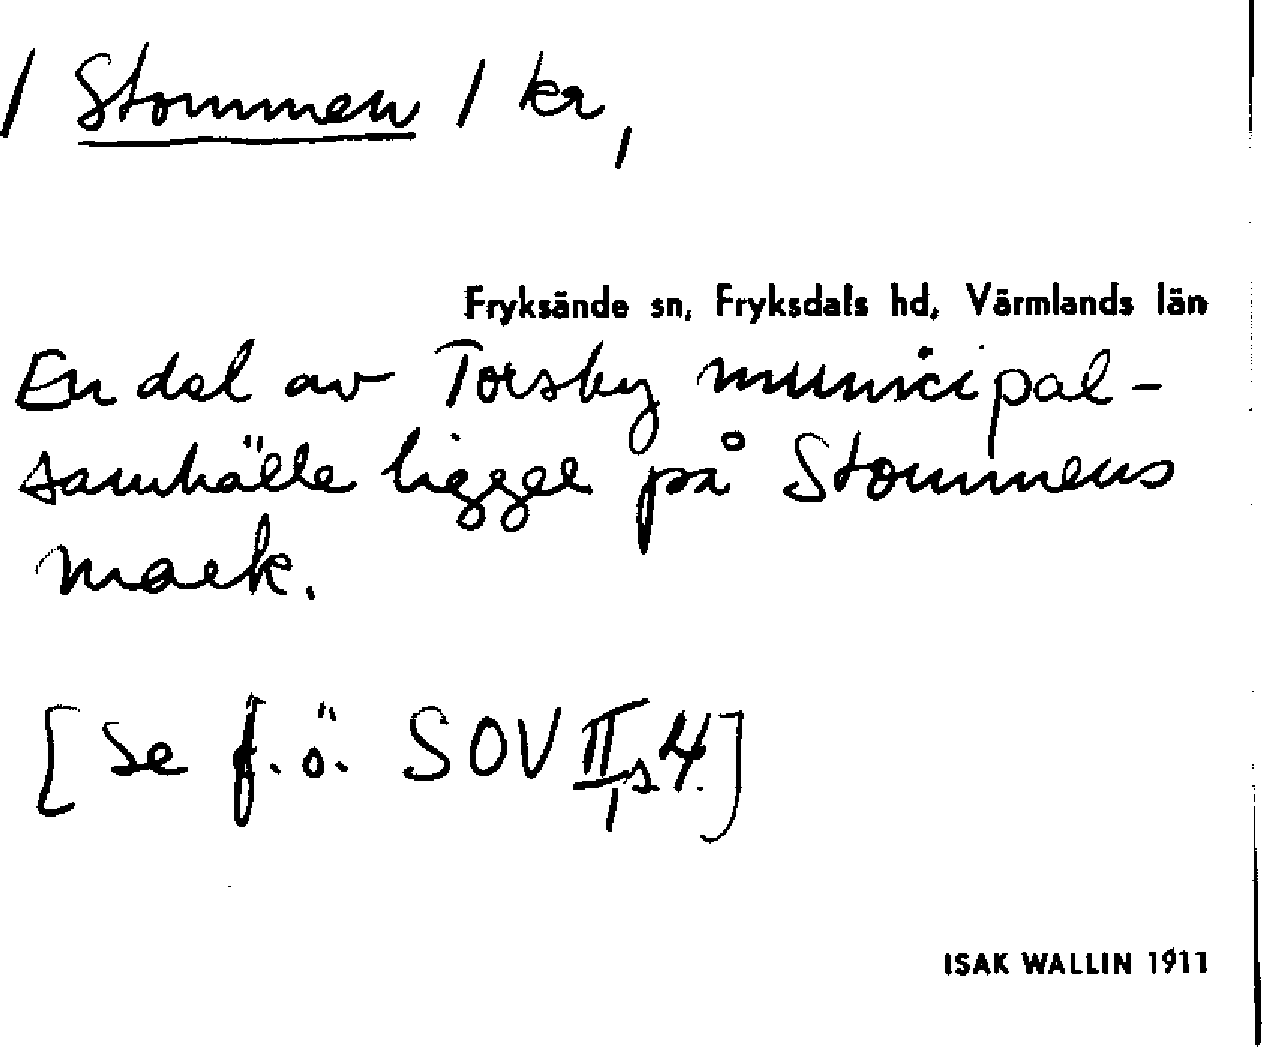 / Stommen / kr,
Fryksände sn, Fryksdals hd, Värmlands län
En del av Torsby municipal-
samhälle ligger på Stommens
mark.
[Se f.ö. SOV II, s 4.]
ISAK WALLIN 1911